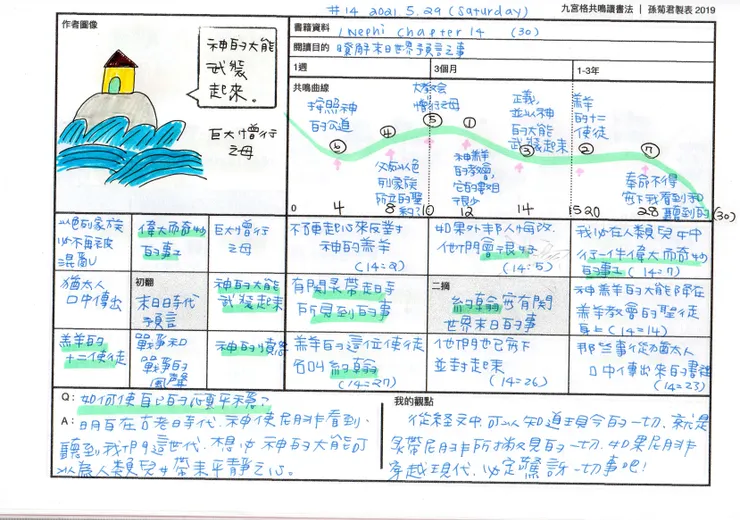 #14 2021.5.29 (Saturday)
九宮格共鳴讀書法 | 孫菊君製表 2019
作者圖像
神的大能
武裝
起來。
巨大憎行
之母
書籍資料
1 Nephi Chapter 14 (30)
閱讀目的
瞭解末日世界預言之事
1週
3個月
1-3年
共鳴曲線
按照神
的公道
大教會
憎行之母
正義,
並以神
的大能
武裝起來
羔羊
的十二
使徒
⑥ ④ ⑤ ① ③ ② ⑦
神羔羊
的教會,
奉命不得
寫下我看到和
聽到的
0 4 8 10 12 14 15 20 28 (30)
以色列家族
必不再被
混亂
偉大而奇妙
的事
巨大憎行
之母
不再起來反對
神的羔羊
(14=2)
如果外邦人悔改,
他們會很好
(14:5)
我必在人類兒女中
行一件偉大而奇妙
的事 (14=7)
猶太人
口中傳出
初翻
末日時代
預言
神的大能
武裝起來
有關長帶起時
所見到的事
二摘
約翰寫有關
世界末日的事
神羔羊的大能降在
羔羊教會的聖徒
身上 (14=14)
羔羊的
十二使徒
戰爭和
戰爭的
風聲
神的憤怒
羔羊的這位使徒
名叫約翰
(14=27)
他們也已寫下
並封起來
(14=26)
那些事從猶太人
口中傳出來的書
(14=23)
Q: 如何使自己的心更平穩?
A: 明白在古老時代,神使尼腓看到、
聽到我們這世代,想必神的大能可
以為人類兒女帶來平靜之心。
我的觀點
從經文中可以知道現今的一切,就是
長帶尼腓所撇見的一切,如果尼腓
穿越現代,必定驚訝一切事吧!